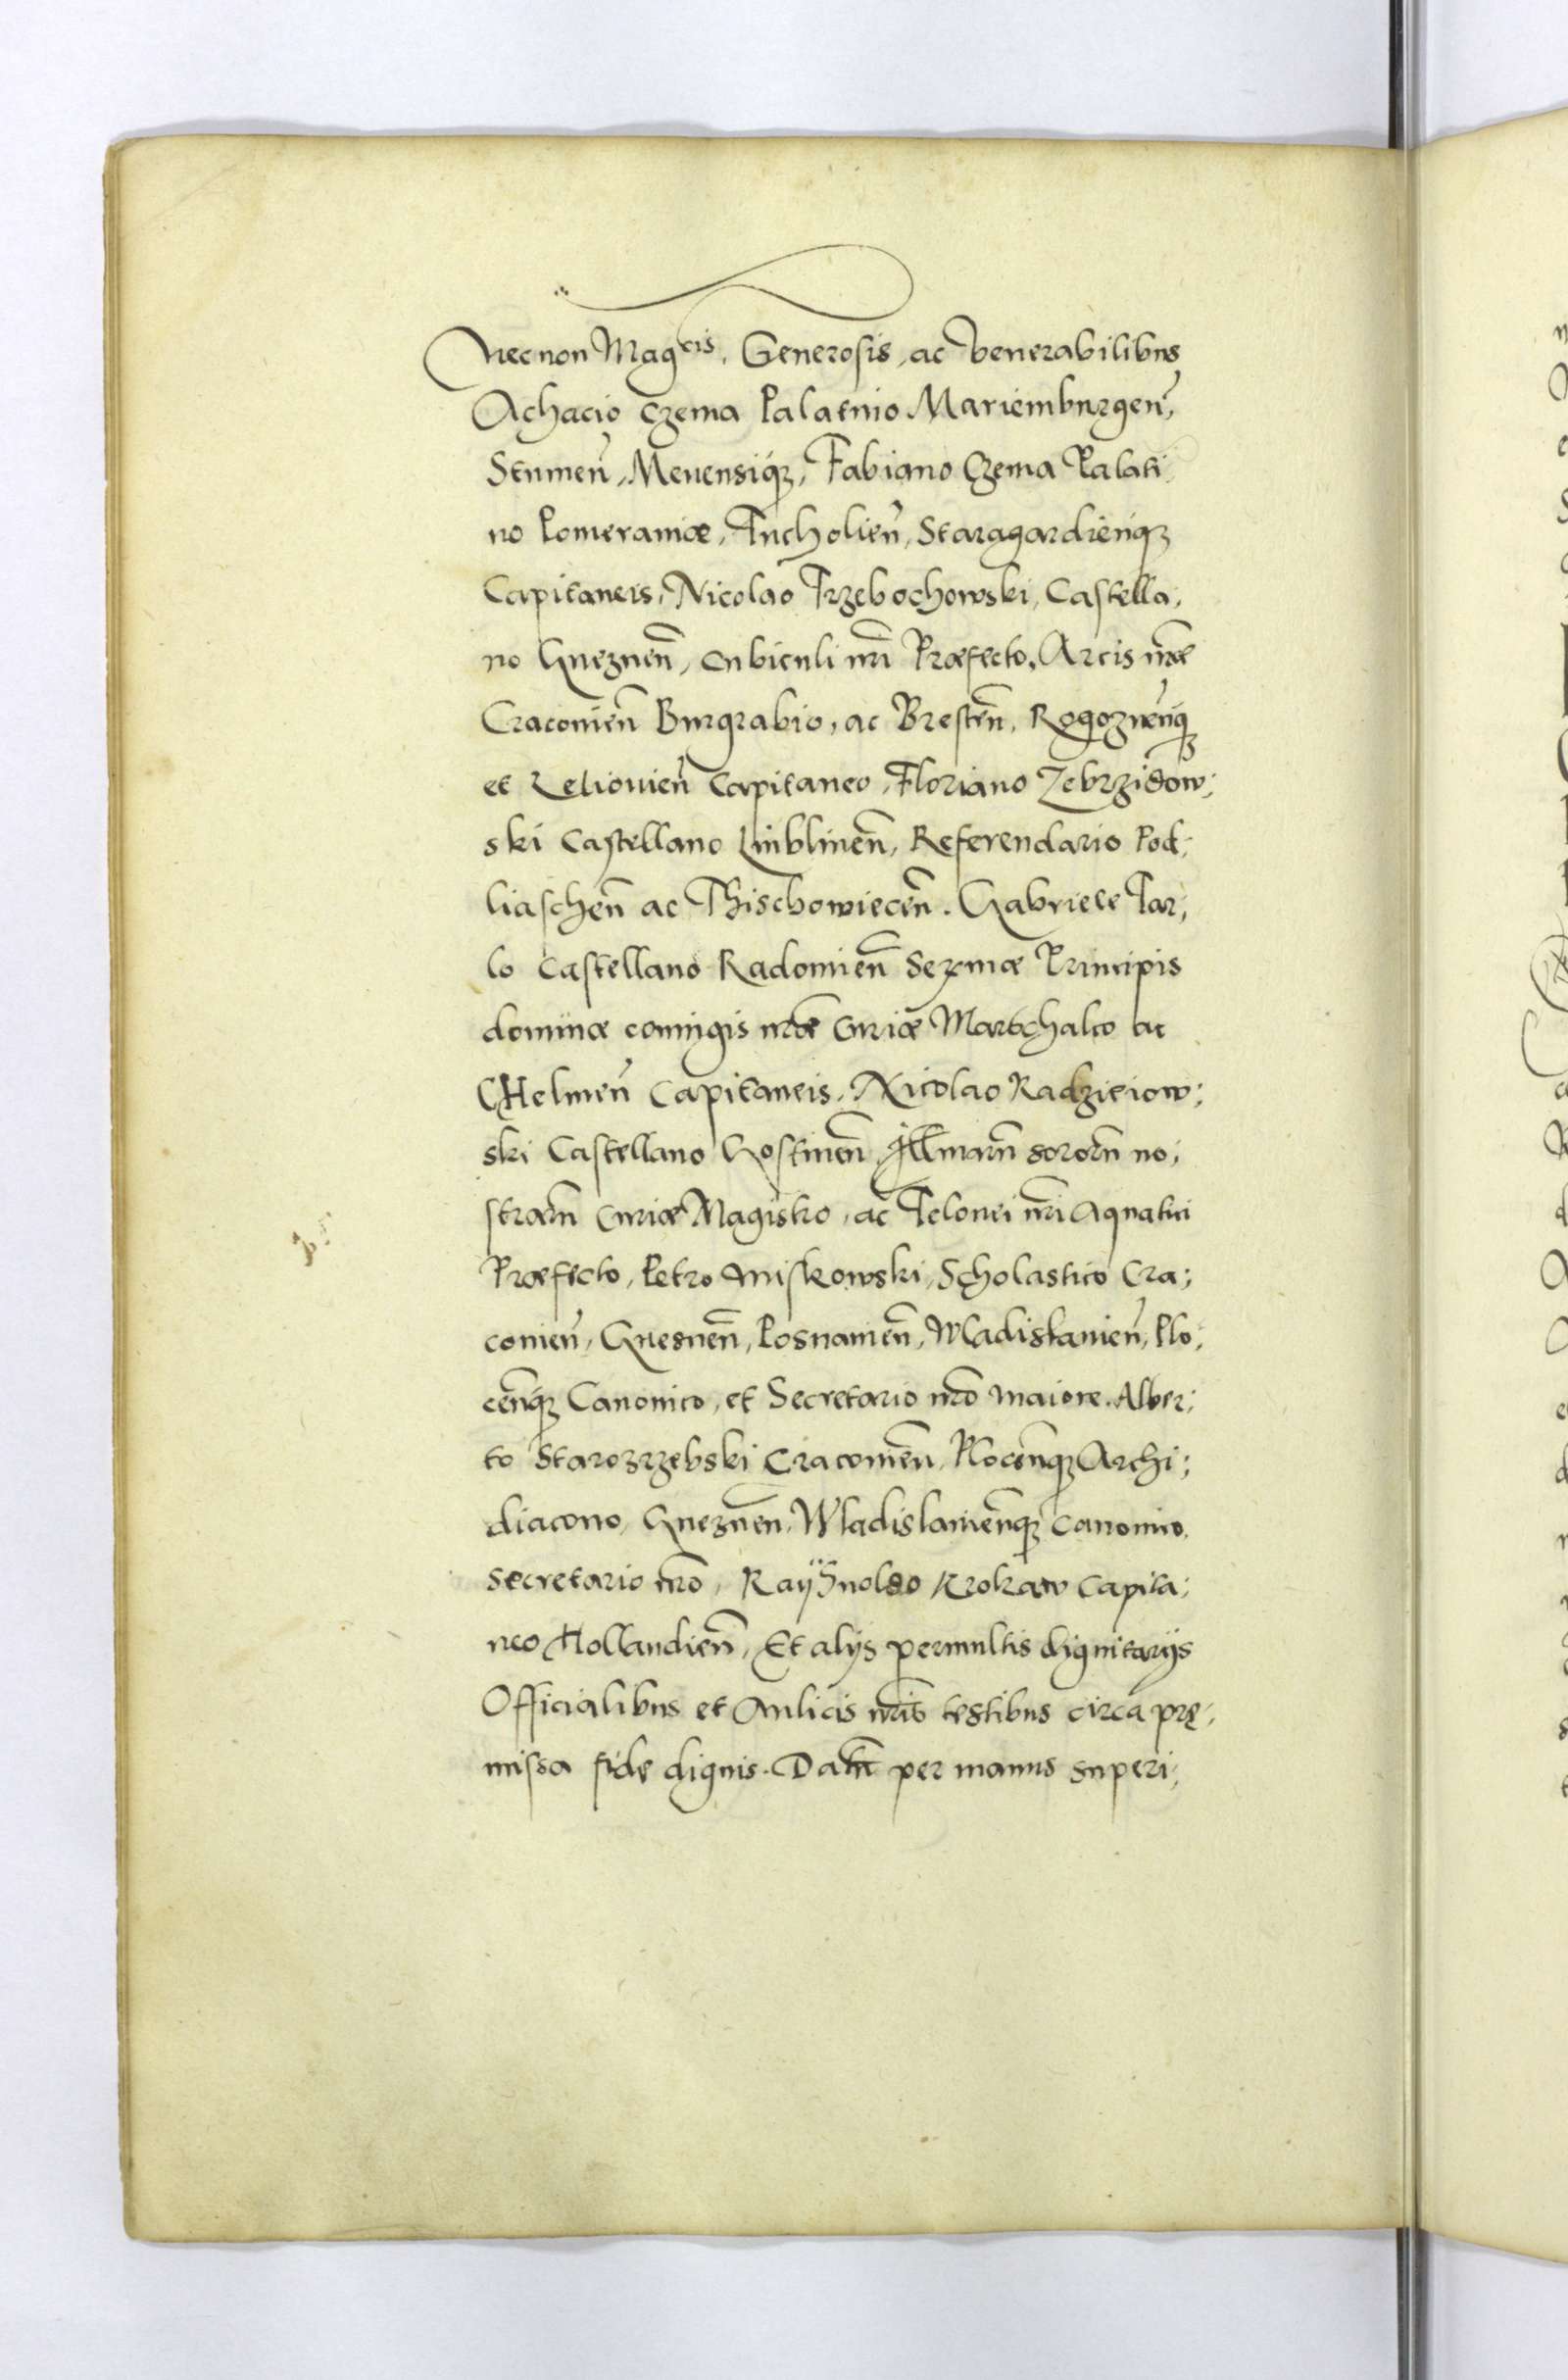 Necnon Mag^cis, Generosis, ac Venerabilibus
Achacio Czema Palatnio Mariemburgen̄,
Stumen̄, Meuensiqꝫ, Fabiano Czema Palati,
no Pomeraniæ, Tucholien̄, Staragardien̄qꝫ
Capitaneis, Nicolao Trzebochowski, Castella,
no Gneznen̄, Cubiculi nr̄i Præfecto, Arcis nr̄æ
Cracouien̄ Burgrabio, ac Bresten̄, Rogoznen̄qꝫ
et Capitaneo, Floriano Zebrzidow;
ski Castellano Lublinen̄, Referendario Pod;
liaschen̄ ac Thischowiecen̄. Gabriele Tar;
lo Castellano Radomien̄ Ser̄mæ Principis
dominæ coniugis nr̄æ Curiæ Martchalco ac
CHelmen̄ Capitaneis, Nicolao Radzieiow;
ski Castellano Gostinen̄ Ill̄marū sororū no;
strarū Curiæ Magistro, ac Telonei nr̄i Aquatici
Præfecto, Petro Miskowski, Scholastico Cra;
couien̄, Gnesnen̄, Posnanien̄, Wladislauien̄, Plo;
cen̄qꝫ Canonico, et Secretario nr̄o maiore. Alber;
to Starozrzebski Cracouien̄, Plocen̄qꝫ Archi;
diacono, Gneznen̄, Wladislauien̄qꝫ Canonico,
Secretario nr̄o, Raÿnoldo Krokaw Capita;
neo Hollandien̄, Et alijs permultis dignitarijs
Officialibus et Aulicis nr̄is testibus circa prę,
missa fide dignis. Datū per manus superi,